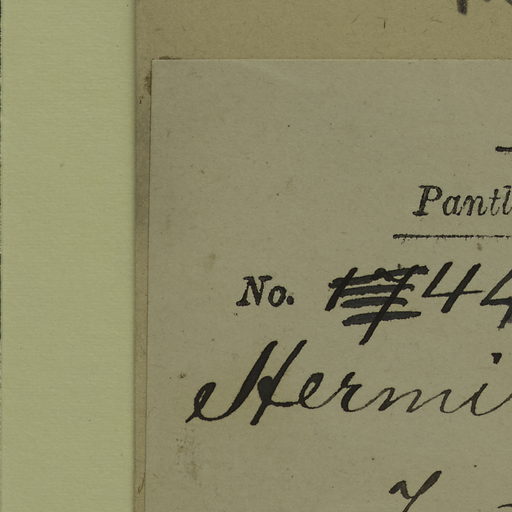 Pantl
No. 44
Hermi